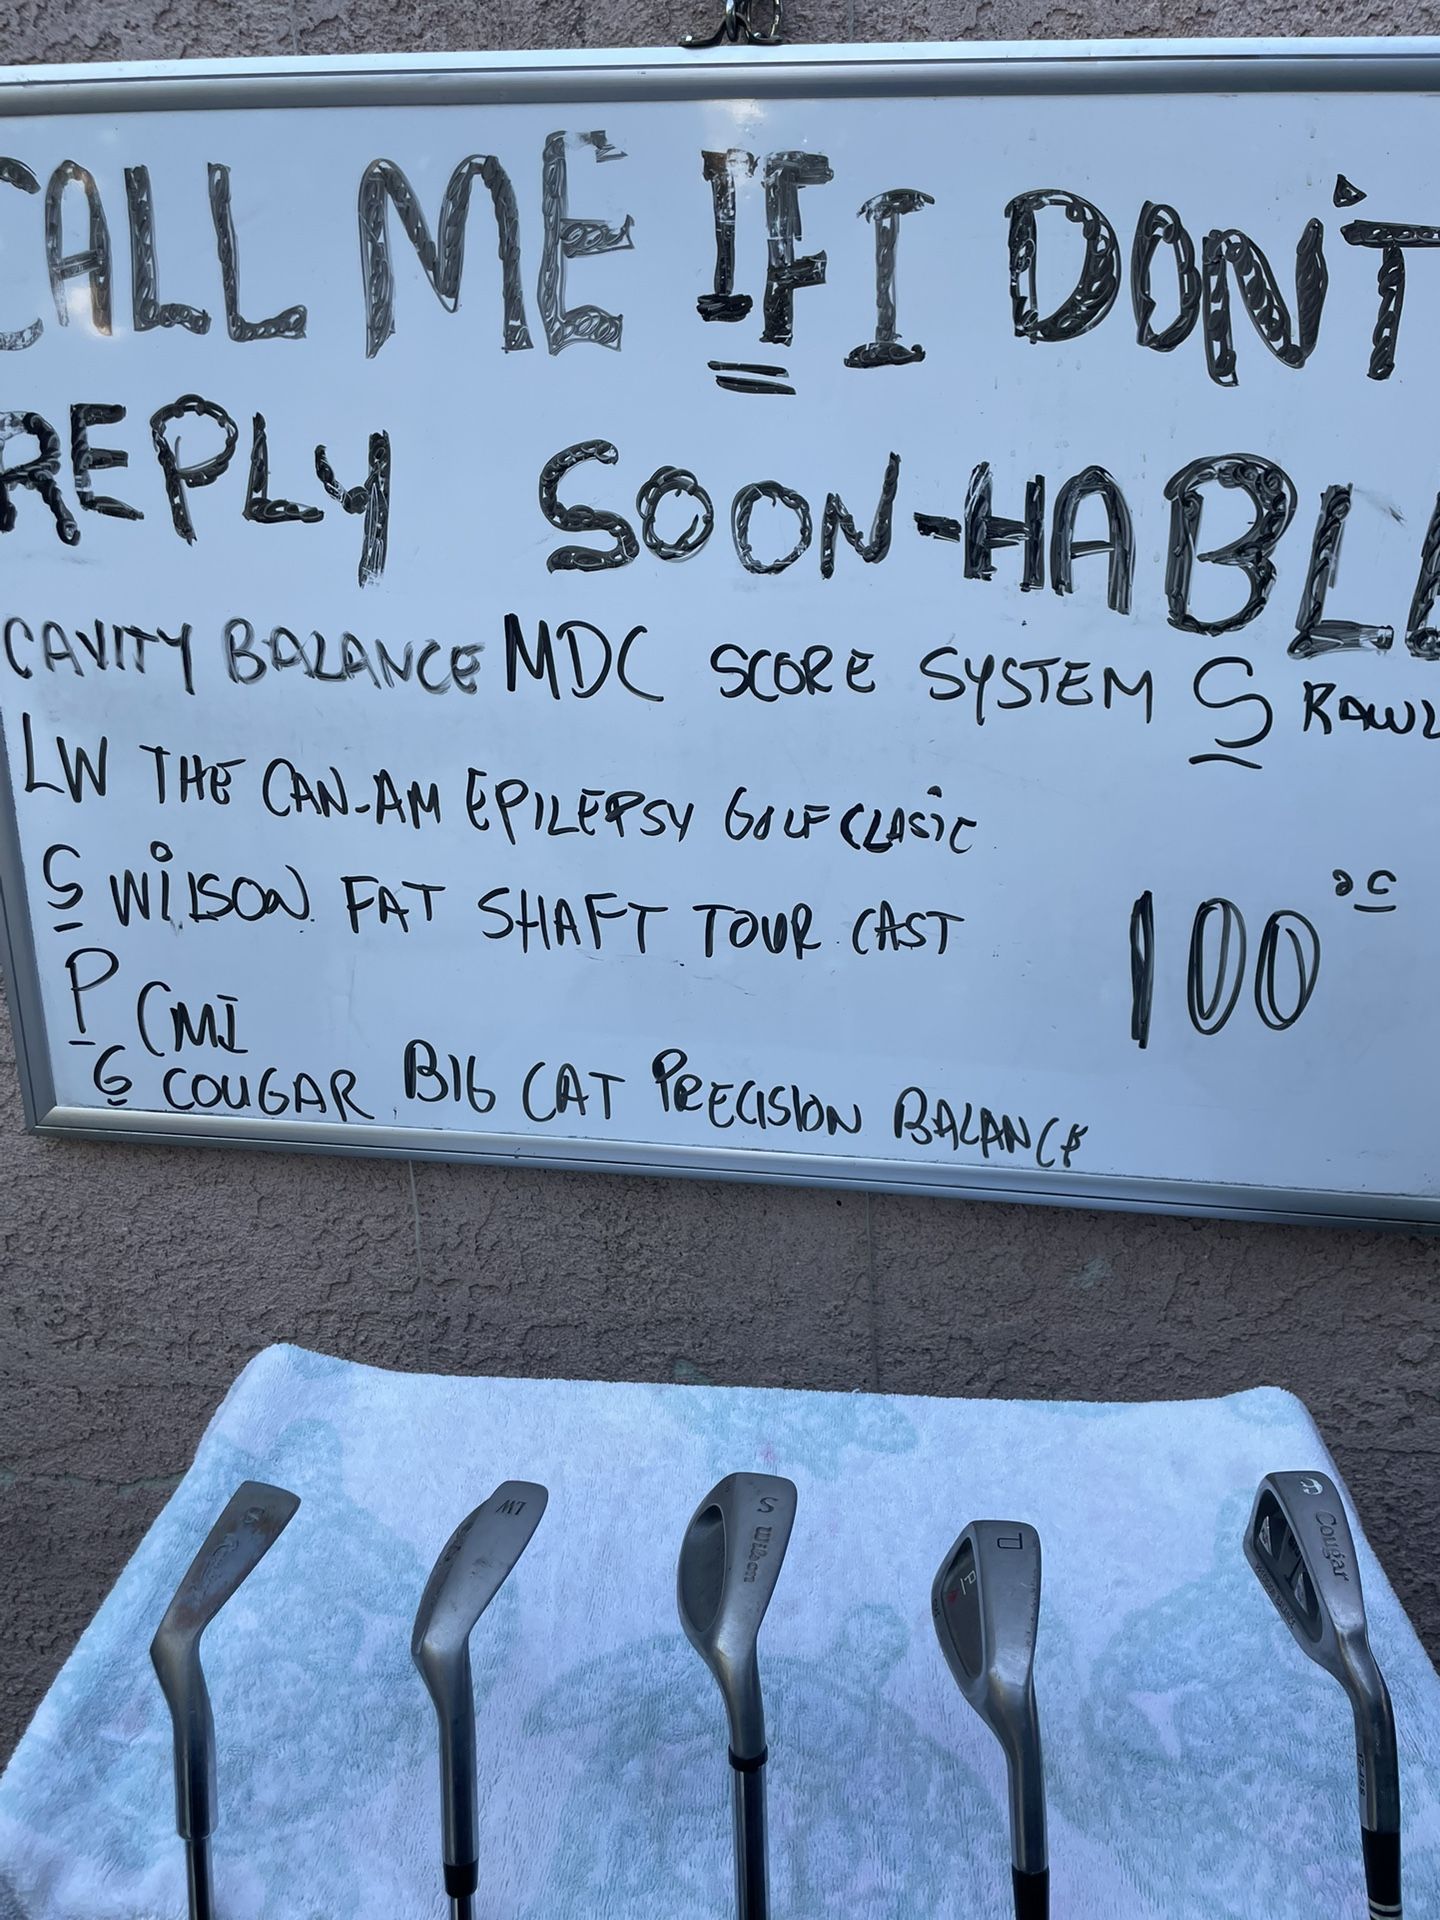 CALL ME IF I DON'T
REPLY SOON-HABLE
CAVITY BALANCE MDC SCORE SYSTEM S RAWL
LW THE CAN-AM EPILEPSY GOLF CLASIC
S WILSON FAT SHAFT TOUR CAST
100
P CMI
6 COUGAR BIG CAT PRECISION BALANCE
LW
S Wilson
P
Cougar